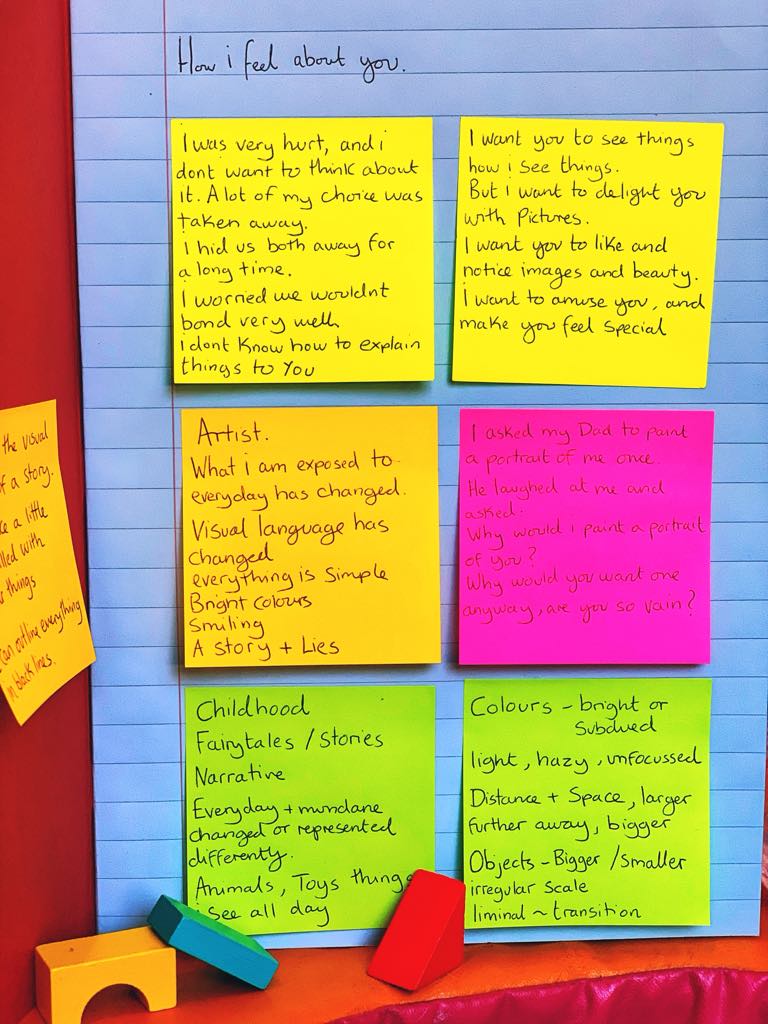 How i feel about you.
I was very hurt, and i
dont want to think about
it. A lot of my choice was
taken away.
I hid us both away for
a long time.
I worried we wouldnt
bond very well
i dont know how to explain
things to You
I want you to see things
how i see things.
But i want to delight you
with Pictures.
I want you to like and
notice images and beauty.
I want to amuse you, and
make you feel special
Artist.
What i am exposed to
everyday has changed.
Visual language has
changed
everything is Simple
Bright colours
Smiling
A story + Lies
I asked my Dad to paint
a portrait of me once.
He laughed at me and
asked.
Why would i paint a portrait
of you?
Why would you want one
anyway, are you so vain?
Childhood
Fairytales / Stories
Narrative
Everyday + mundane
changed or represented
differently.
Animals, Toys things
i see all day
Colours - bright or
Subdued
light, hazy, unfocussed
Distance + Space, larger
further away, bigger
Objects - Bigger / Smaller
irregular scale
liminal ~ transition
the visual
of a story.
a little
with
things
can outline everything
in black lines.